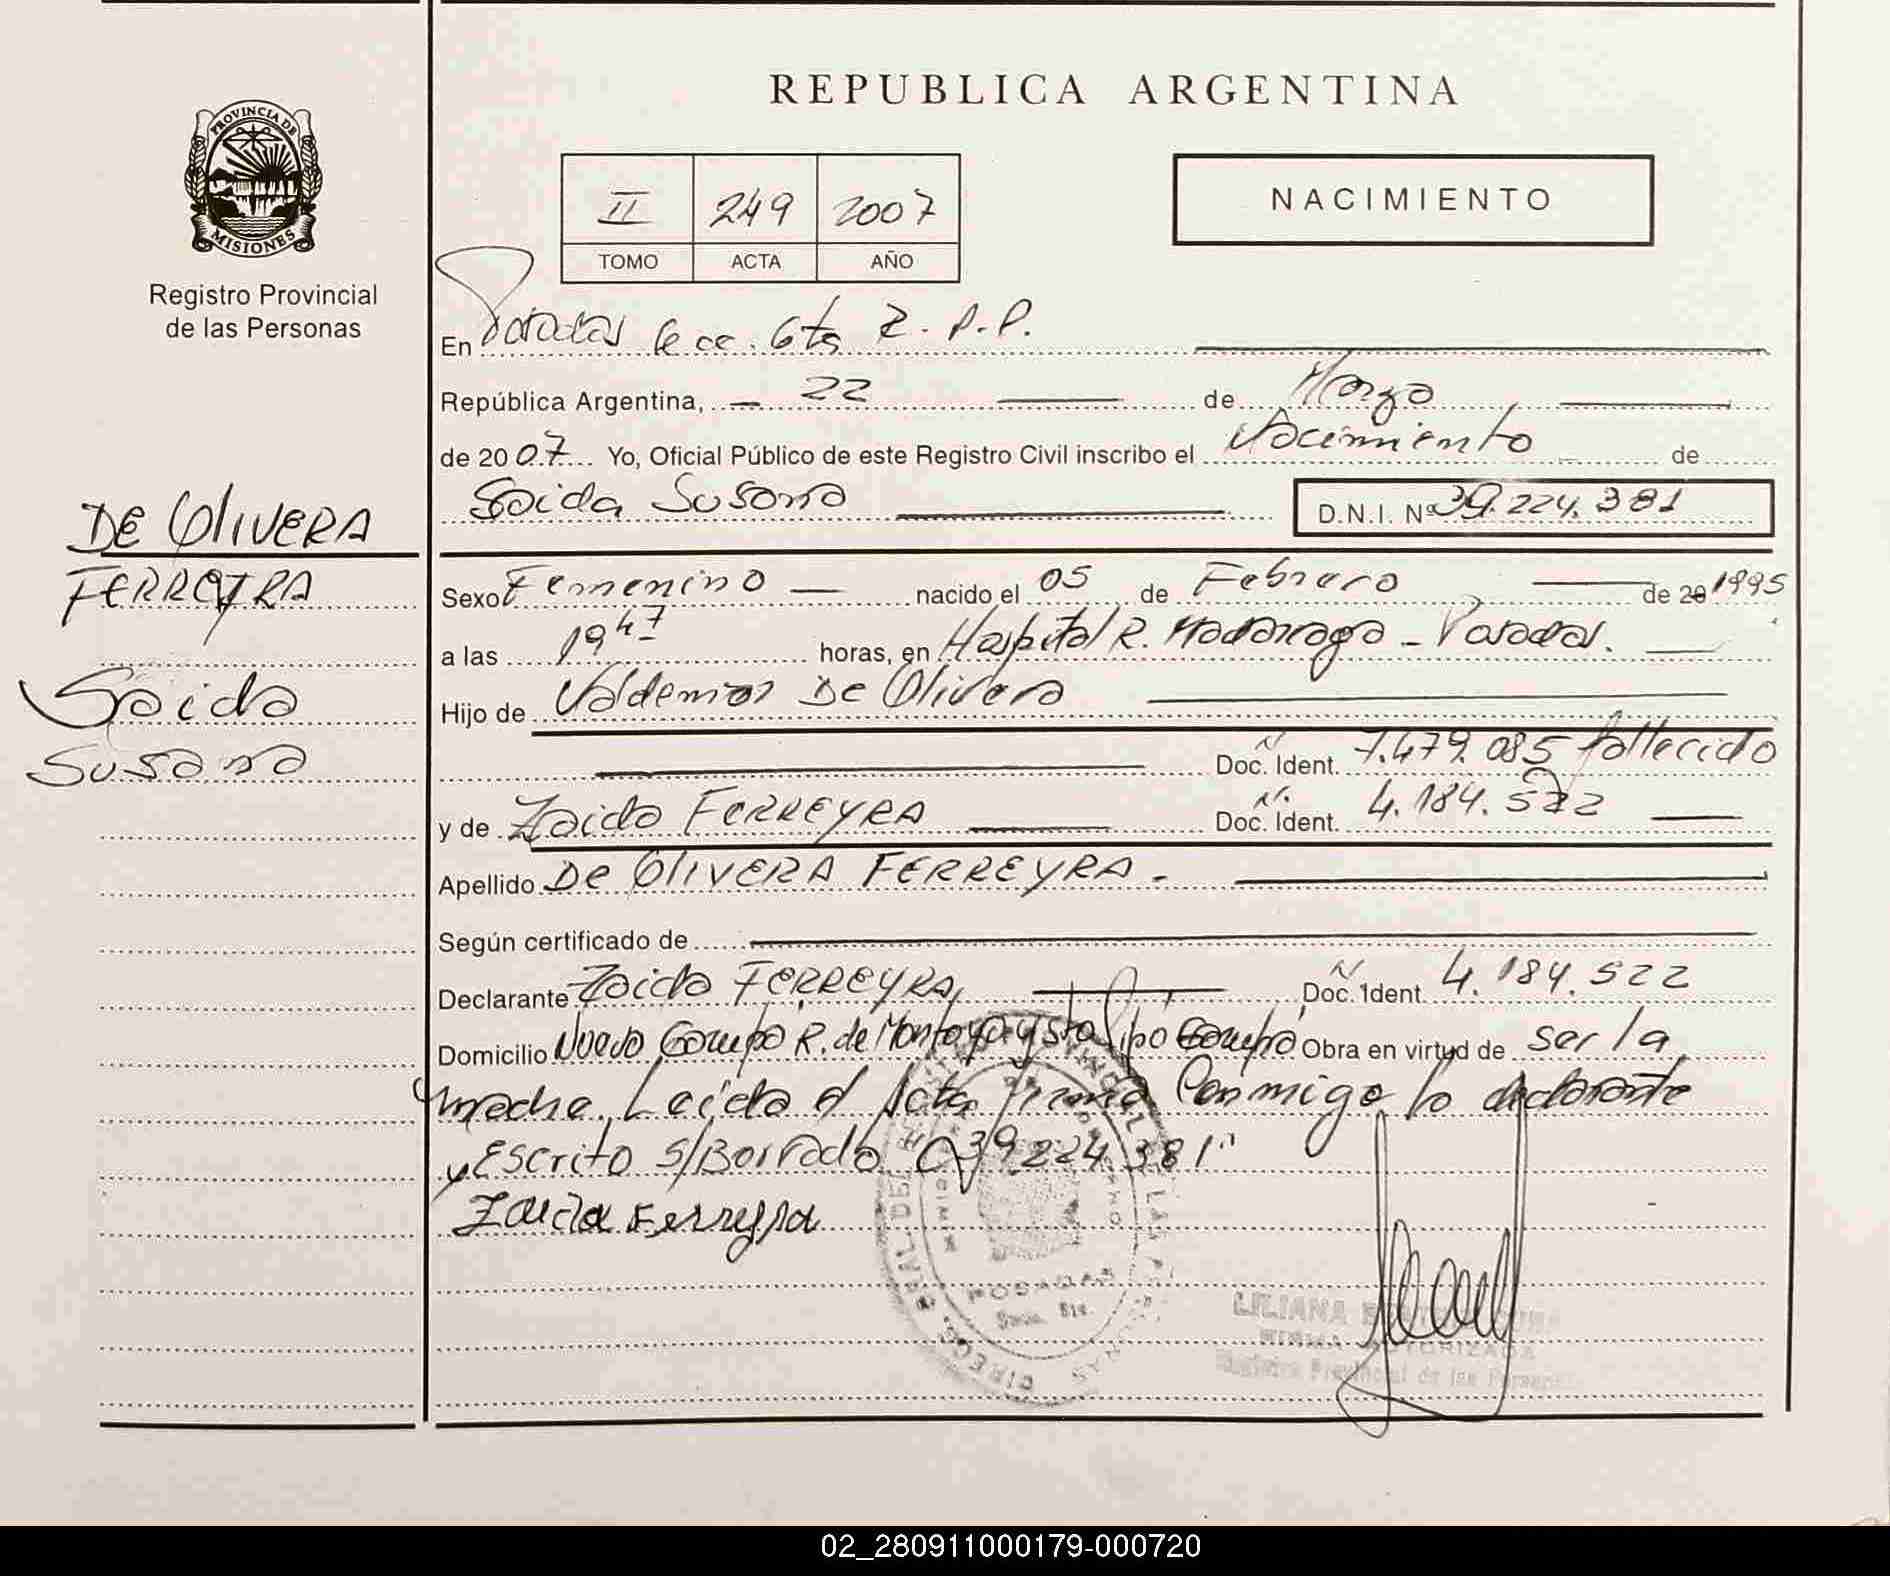 REPUBLICA ARGENTINA
PROVINCIA DE
MISIONES
Registro Provincial
de las Personas
II 249 2007
TOMO ACTA AÑO
NACIMIENTO
En Posadas Secc. 6ta R.P.P.
República Argentina, 22 de Marzo
de 2007 Yo, Oficial Público de este Registro Civil inscribo el Nacimiento de
Saida Susana D.N.I. Nº 39.224.381
DE OLIVERA
FERREYRA
Saida
Susana
Sexo Femenino nacido el 05 de Febrero de 20 1995
a las 19 47 horas, en Hospital R. Madariaga - Posadas.
Hijo de Valdemar De Olivera
Doc. Ident. N 7.479.085 fallecido
y de Zaida FERREYRA Doc. Ident. N. 4.184.522
Apellido De OLIVERA FERREYRA.
Según certificado de
Declarante Zaida FERREYRA, Doc. Ident. N 4.184.522
Domicilio Nuevo Garupá R. de Montoya y Garupá Obra en virtud de ser la
madre. Leida el Acta firma Conmigo la declarante
y Escrito s/Borrado "39224381"
Zaida Ferreyra
POSADAS
LILIANA
FIRMA AUTORIZADA
Registro Provincial de las Personas
02_280911000179-000720